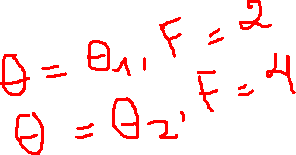 θ = θ1, F = 2
θ = θ2, F = 4